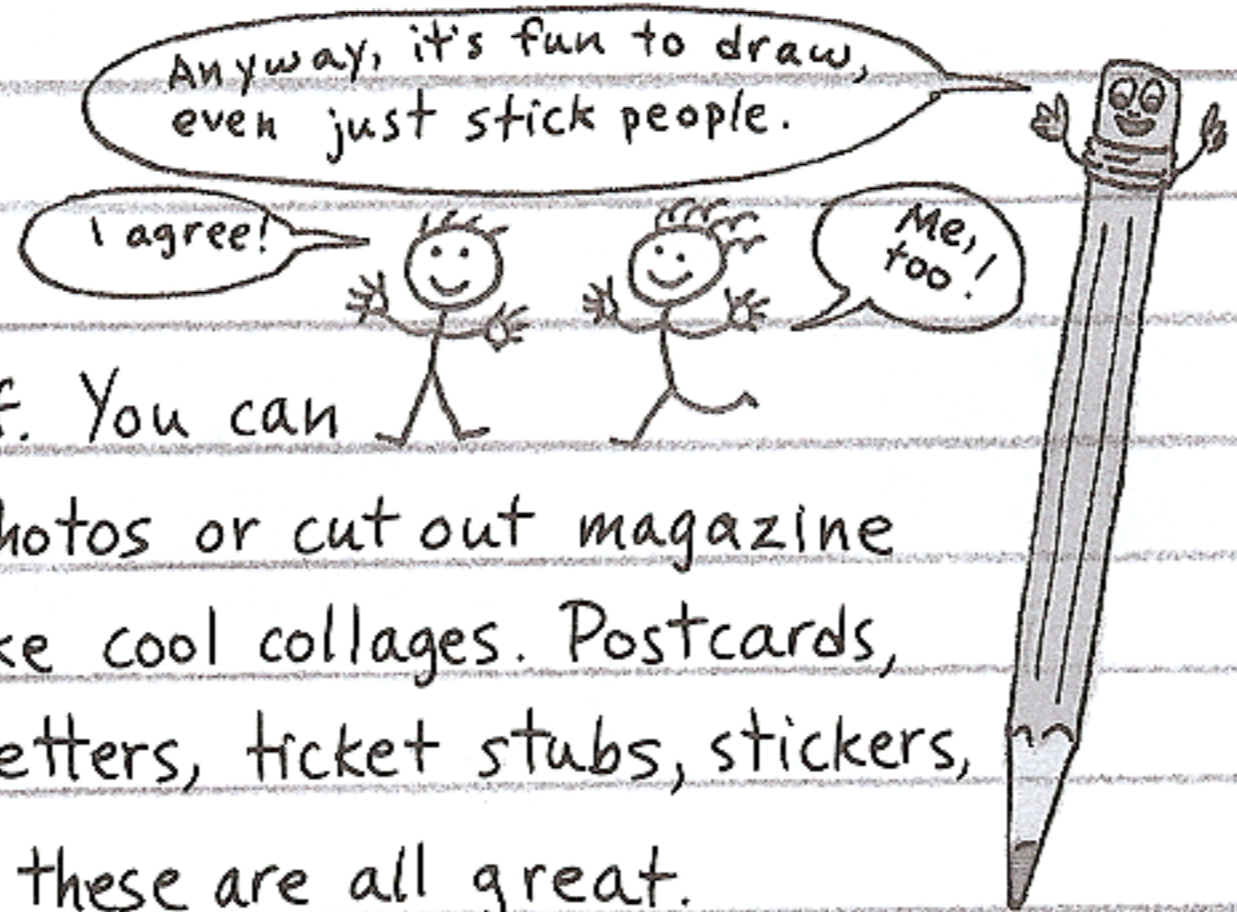 Anyway, it's fun to draw,
even just stick people.
I agree!
Me,
too!
f. You can
hotos or cut out magazine
ke cool collages. Postcards,
etters, ticket stubs, stickers,
these are all great.